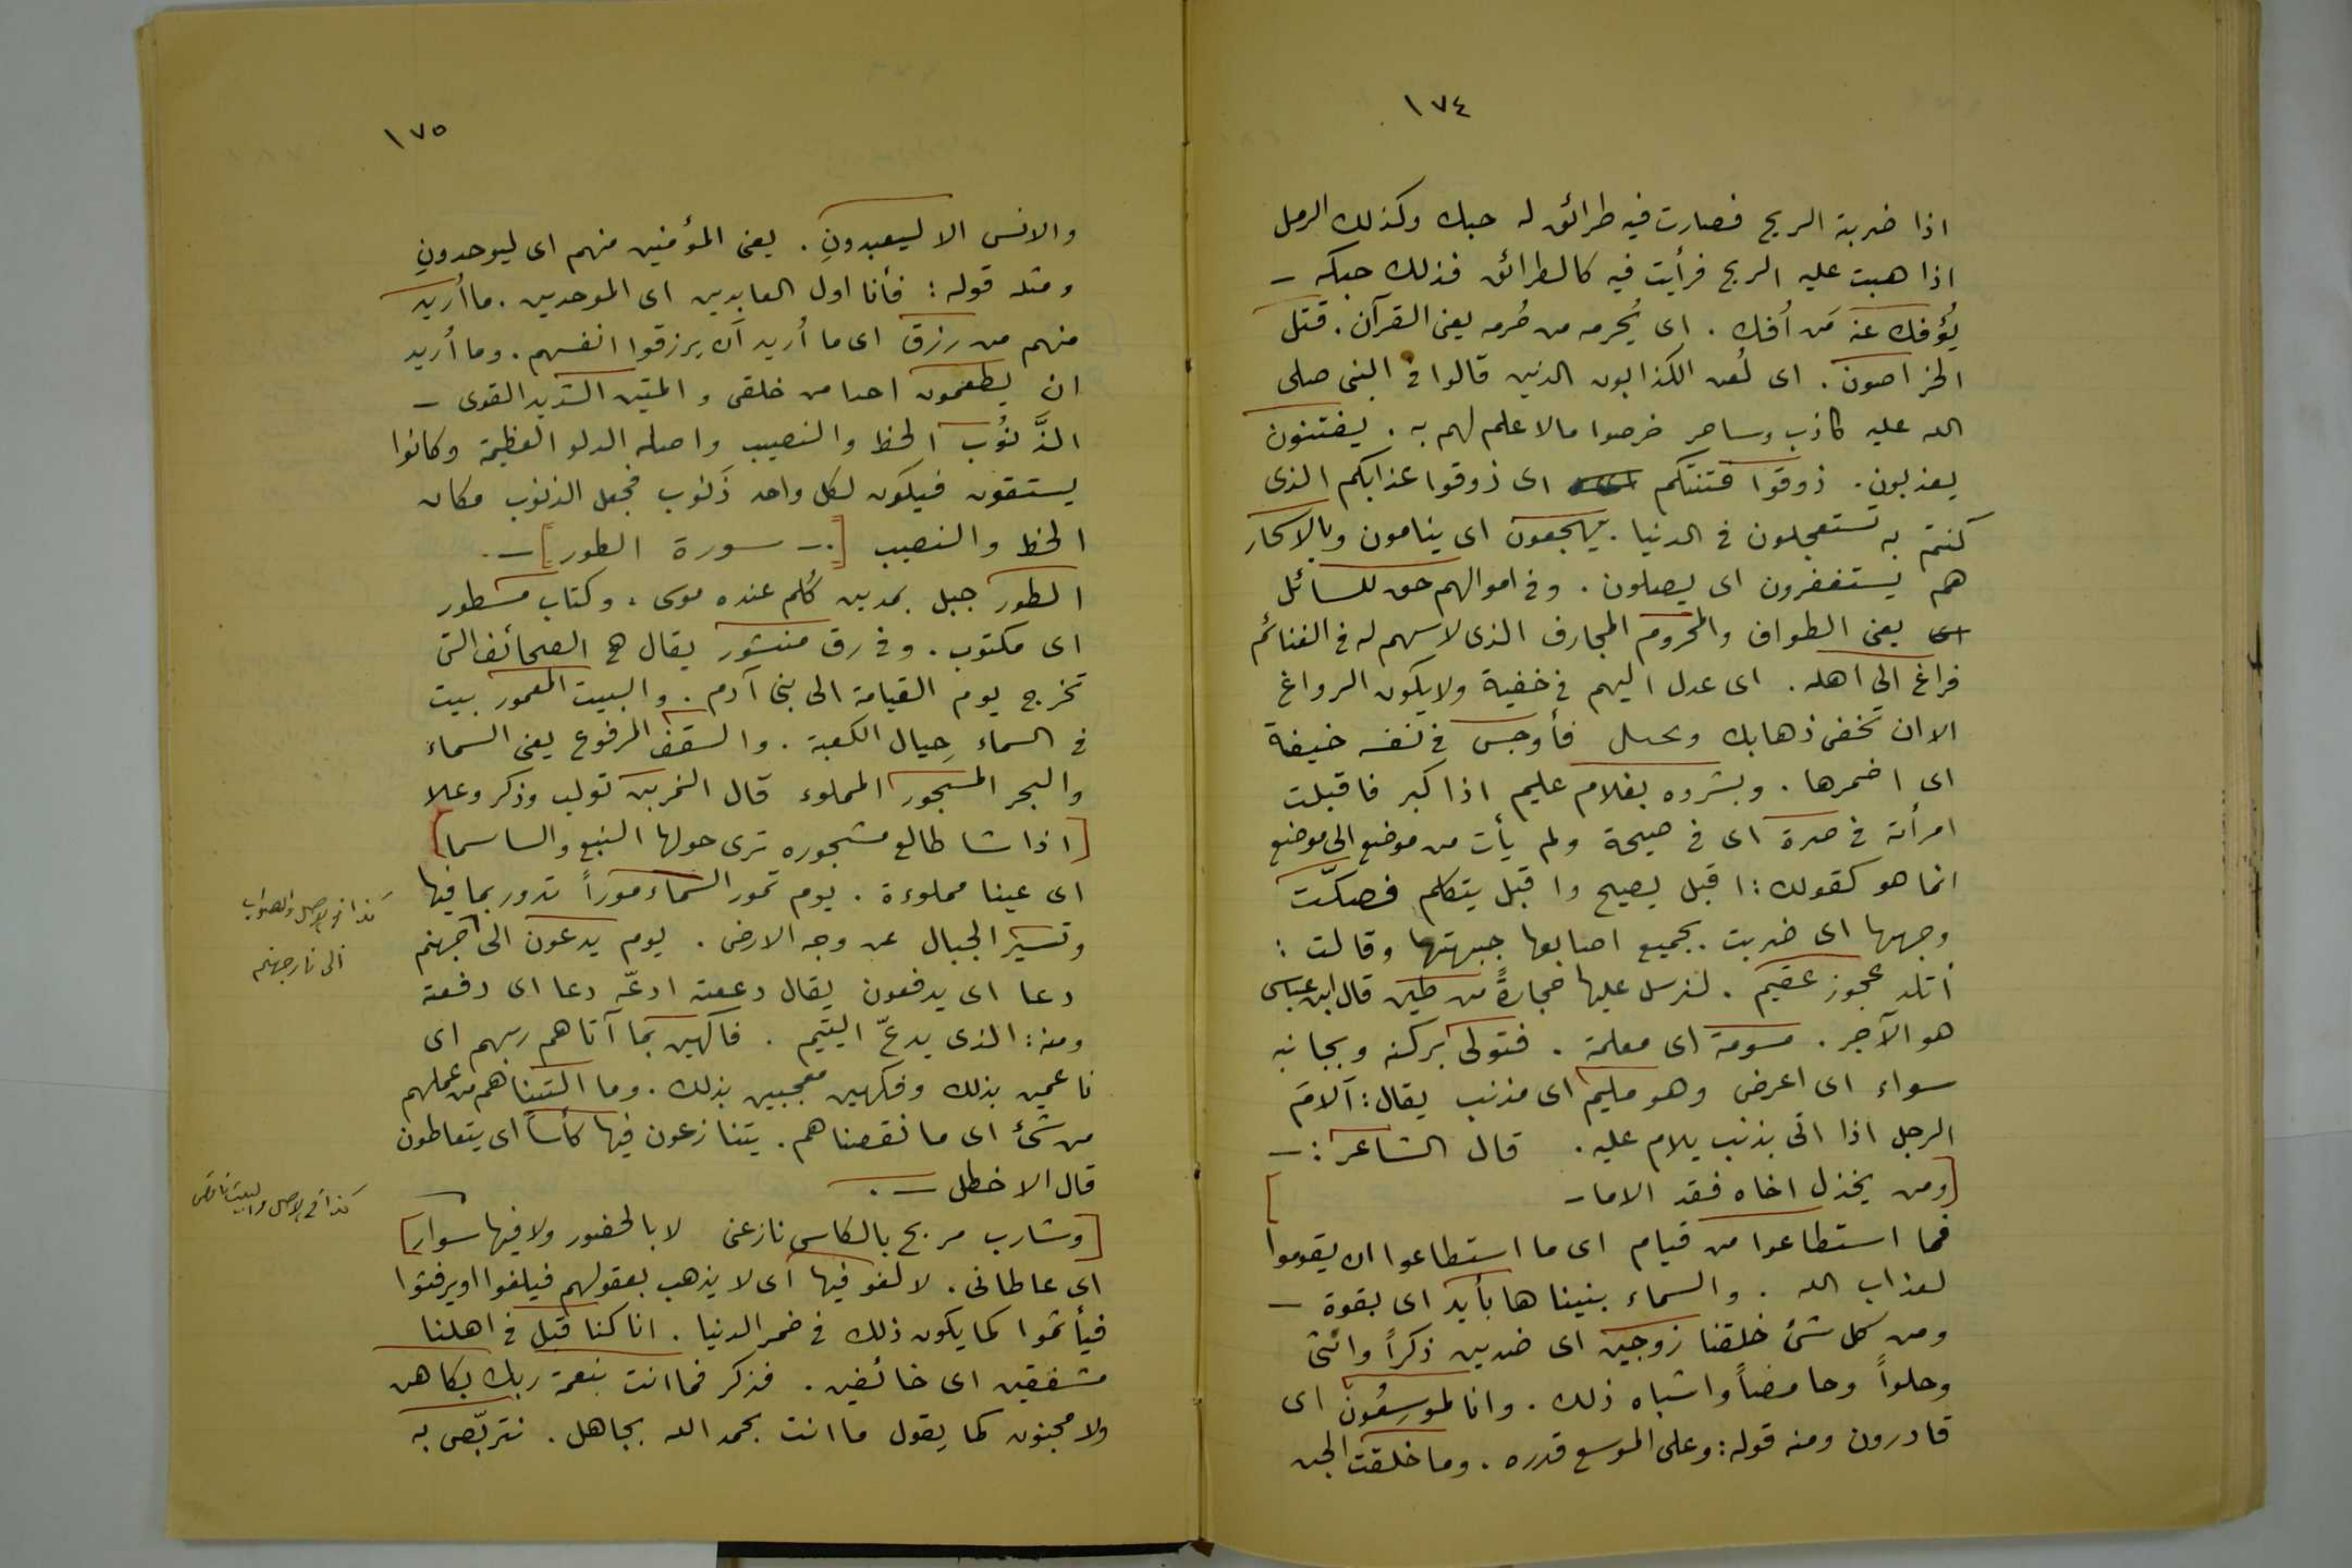 ١٧٤
اذا ضربته الريح فصارت فيه طرائق له حبك وكذلك الرمل
اذا هبت عليه الريح فرأيت فيه كالطرائق فذلك حبكه ـ
يُؤفك عنه مَن أُفك . اى يُحرمه من حُرمه يعنى القرآن . قتل
الخراصون . اى لُعن الكذابون الذين قالوا فى النبى صلى
الله عليه كاذب وساحر خرصوا مالا علم لهم به . يفتنون
يعذبون . ذوقوا فتنتكم اى ذوقوا عذابكم الذى
كنتم به تستعجلون فى الدنيا . يهجعون اى ينامون وبالاسحار
هم يستغفرون اى يصلون . وفى اموالهم حق للسائل
اى يعنى الطواف والمحروم المحارف الذى لا سهم له فى الغنائم
فراغ الى اهله . اى عدل اليهم فى خفية ولا يكون الرواغ
الا ان تخفى ذهابك فأوجس فى نفسه خيفة
اى اضمرها . وبشروه بغلام عليم اذا كبر فاقبلت
امرأته فى صرة اى فى صيحة ولم يأت من موضع الى موضع
انما هو كقولك : اقبل يصيح واقبل يتكلم فصكّت
وجهها اى ضربت بجميع اصابعها جبهتها وقالت :
أتلد عجوز عقيم . لنرسل عليها حجارةً من طين قال ابن عباس
هو الآجر . مسومة اى معلمة . فتولى بركنه وبجانبه
سواء اى اعرض وهو مليم اى مذنب يقال : آلامَ
الرجل اذا اتى بذنب يلام عليه . قال الشاعر : ـ
[ومن يخذل اخاه فقد الاما ـ ]
فما استطاعوا من قيام اى ما استطاعوا ان يقوموا
لعذاب الله . والسماء بنيناها بأيد اى بقوة ـ
ومن كل شئ خلقنا زوجين اى ضدين ذكراً وانثى
وحلواً وحامضاً واشباه ذلك . وانا لموسِعُون اى
قادرون ومنه قوله : وعلى الموسع قدره . وما خلقت الجن
١٧٥
والانس الا ليعبدونِ . يعنى المؤمنين منهم اى ليوحدونِ
ومثله قوله : فأنا اول العابدين اى الموحدين . ما أريد
منهم من رزق اى ما أُريد أن يرزقوا انفسهم . وما أُريد
ان يطعمون احدا من خلقى و المتين الشديد القوى ـ
الذَّنُوب الحظ والنصيب واصله الدلو العظيمة وكانوا
يستقون فيكون لكل واحد ذَنوب فجعل الذنوب مكان
الحظ والنصيب [ . ـ سورة الطور ] ـ .
الطور جبل بمدين كُلم عنده موسى . وكتاب مسطور
اى مكتوب . وفى رق منشور يقال هى الصحائف التى
تخرج يوم القيامة الى بنى آدم . والبيت المعمور بيت
فى السماء حِيال الكعبة . والسقف المرفوع يعنى السماء
والبحر المسجور المملوء قال النمر بن تولب وذكر وعلا
[اذا شا طالع مسجوره ترى حولها النبع والساسما]
اى عينا مملوءة . يوم تمور السماء موراً تدور بما فيها
وتسير الجبال عن وجه الارض . يوم يدعون الى جهنم
دعا اى يدفعون يقال دععته ادعّه دعا اى دفعته
ومنه : الذى يدعّ اليتيم . فاكهين بما آتاهم ربهم اى
ناعمين بذلك وفكهين معجبين بذلك . وما التناهم من عملهم
من شئ اى ما نقصناهم . يتنازعون فيها كأساً اى يتعاطون
قال الاخطل ـ .
[وشارب مربح بالكاس نازعنى لا بالحضور ولا فيها سوار]
اى عاطانى . لا لغو فيها اى لا يذهب بعقولهم فيلغوا او يرفثوا
فيأثموا كما يكون ذلك فى خمر الدنيا . انا كنا قبل فى اهلنا
مشفقين اى خائفين . فذكر فما انت بنعمة ربك بكاهن
ولا مجنون كما يقول ما انت بحمد الله بجاهل . نتربّص به
كذا فى الاصل والصواب
الى نار جهنم
كذا فى الاصل والبيت ناقص